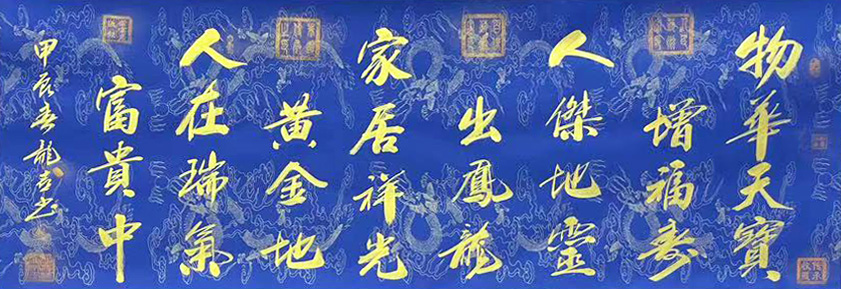 物華天寶
增福壽
人傑地靈
出鳳龍
家居祥光
黃金地
人在瑞氣
富貴中
甲辰春龍吉书